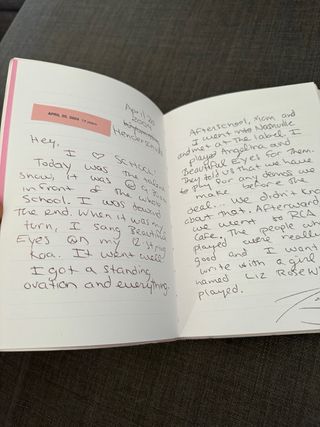 APRIL 20, 2004
April 20
2004
Hendersonville
Hey,
I ♡ SCHOOL!
Today was the talent
show, it was @ 9:
in front of the whole
School. I was toward
the end. When it was my
turn, I sang Beautiful
Eyes on my 12-string
Koa. It went well
I got a standing
ovation and everything.
Afterschool, mom and
I went into Nashville
and met at The label. I
played Angelina and
Beautiful Eyes for them.
they told us that we have
to play for any demos we
make before the
deal. We didn't know
about that. Afterward
we went to RCA
cafe. The people who
played were really
good and I went
write with a girl
named Liz Rose w
played.